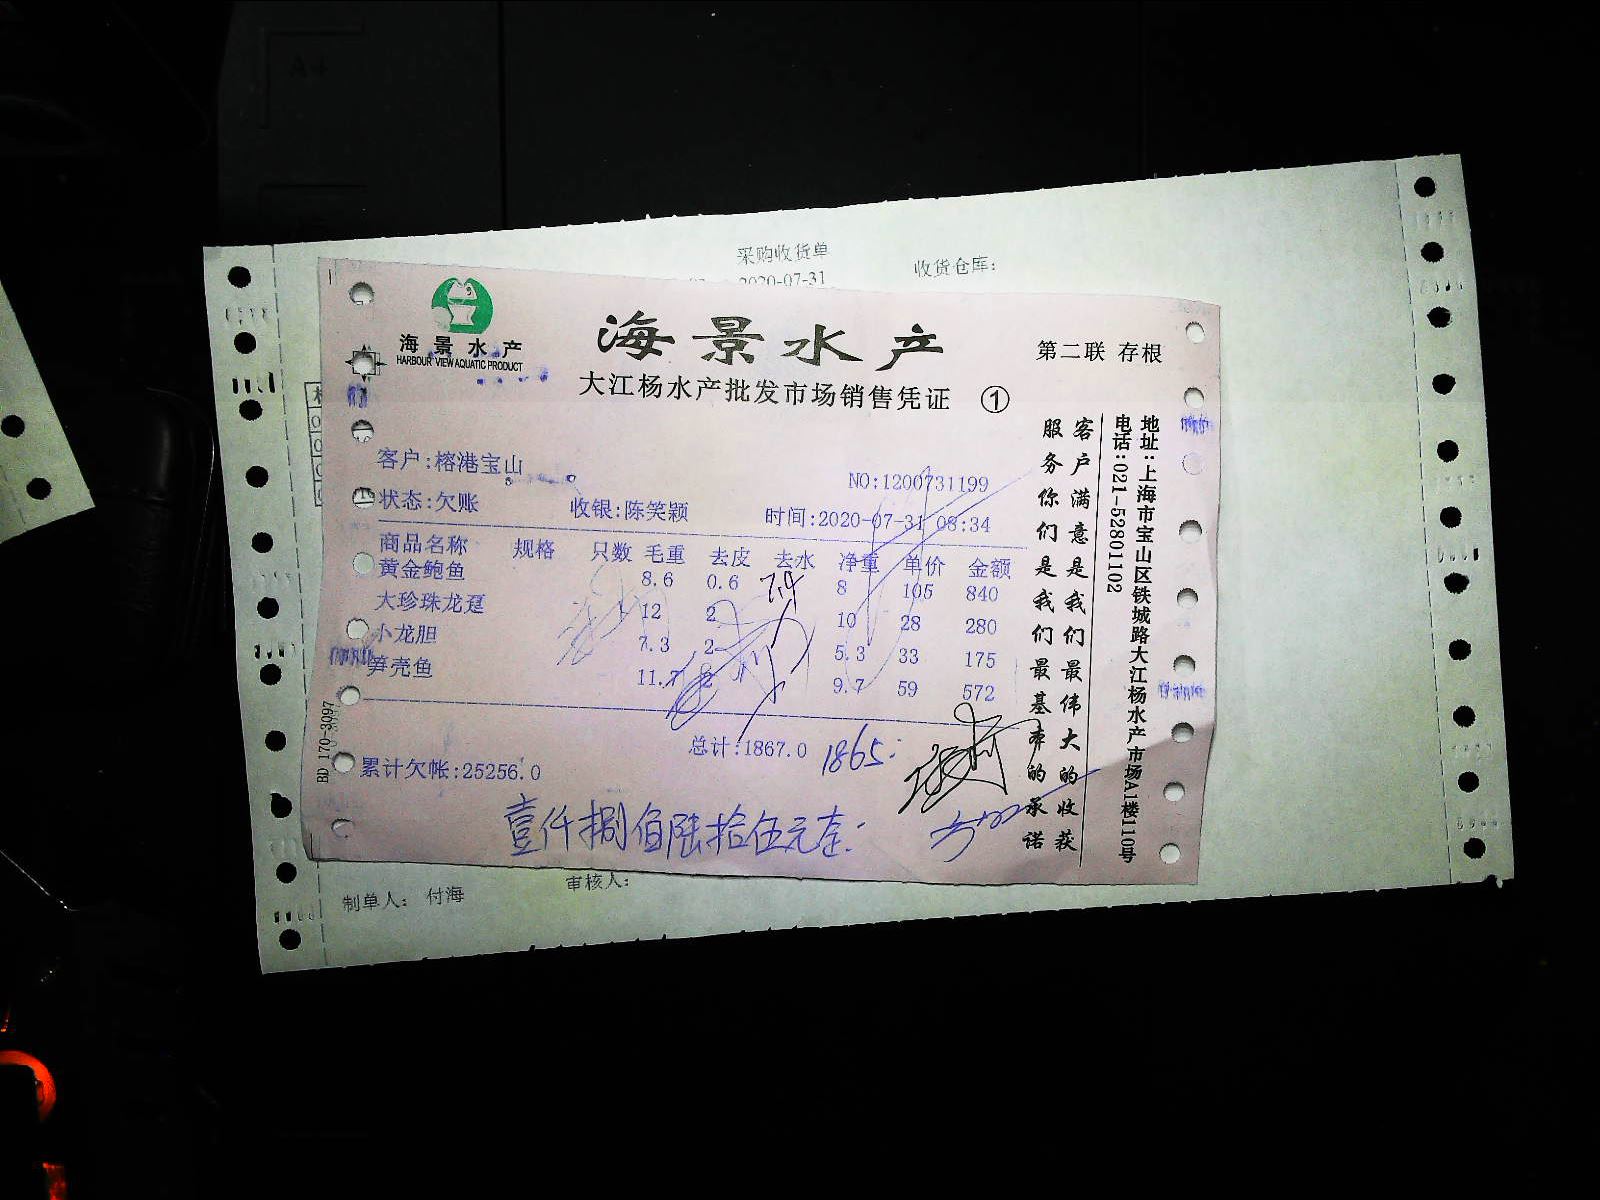 采购收货单
2020-07-31
收货仓库:
海景水产
HARBOUR VIEW AQUATIC PRODUCT
海景水产
第二联 存根
大江杨水产批发市场销售凭证 ①
客户:榕港宝山
NO:1200731199
状态:欠账 收银:陈笑颖 时间:2020-07-31 08:34
商品名称 规格 只数 毛重 去皮 去水 净重 单价 金额
黄金鲍鱼 8.6 0.6 7.4 8 105 840
大珍珠龙趸 12 2 10 28 280
小龙胆 7.3 2 5.3 33 175
笋壳鱼 11.7 2 9.7 59 572
总计:1867.0 1865.
累计欠帐:25256.0
壹仟捌佰陆拾伍元整.
客户满意是我们最伟大的收获
服务你们是我们最基本的承诺
地址:上海市宝山区铁城路大江杨水产市场A1楼110号
电话:021-52801102
BD 170-3097
制单人: 付海
审核人: